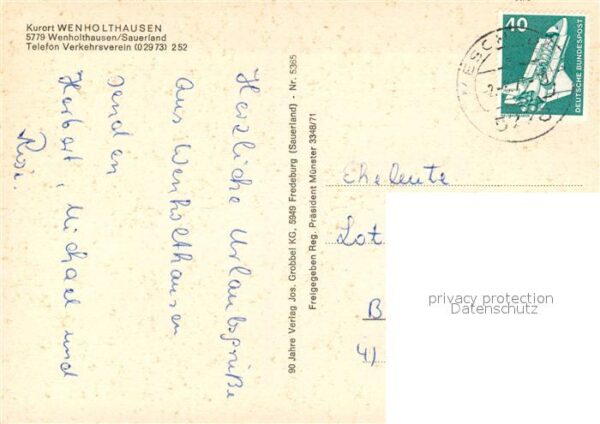 Kurort WENHOLTHAUSEN
5779 Wenholthausen/Sauerland
Telefon Verkehrsverein (02973) 252
Herzliche Urlaubsgrüße
aus Wenholthausen
senden
Herbert, Michael und
Rosi.
90 Jahre Verlag Jos. Grobbel KG, 5949 Fredeburg (Sauerland) - Nr. 5365
Freigegeben Reg. Präsident Münster 3348/71
40
DEUTSCHE BUNDESPOST
Eheleute
Lot
B
41
privacy protection
Datenschutz